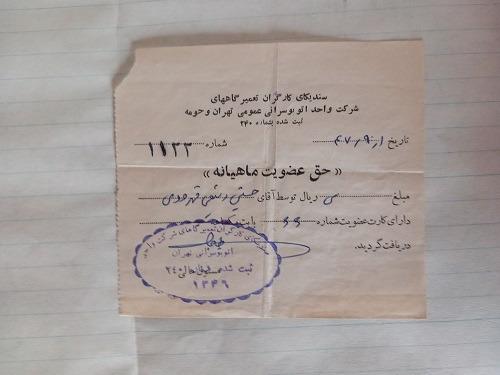 سندیکای کارگران تعمیرگاههای
شرکت واحد اتوبوسرانی عمومی تهران و حومه
ثبت شده بشماره ۲۴۰
تاریخ ۴۷٫۹٫۱
شماره ۱۱۲۳
« حق عضویت ماهیانه »
مبلغ ریال توسط آقای
دارای کارت عضویت شماره ۶۶ بابت
دریافت گردید.
سندیکای کارگران تعمیرگاههای شرکت واحد
اتوبوسرانی تهران
ثبت شده ۲۴۰
۱۳۴۶